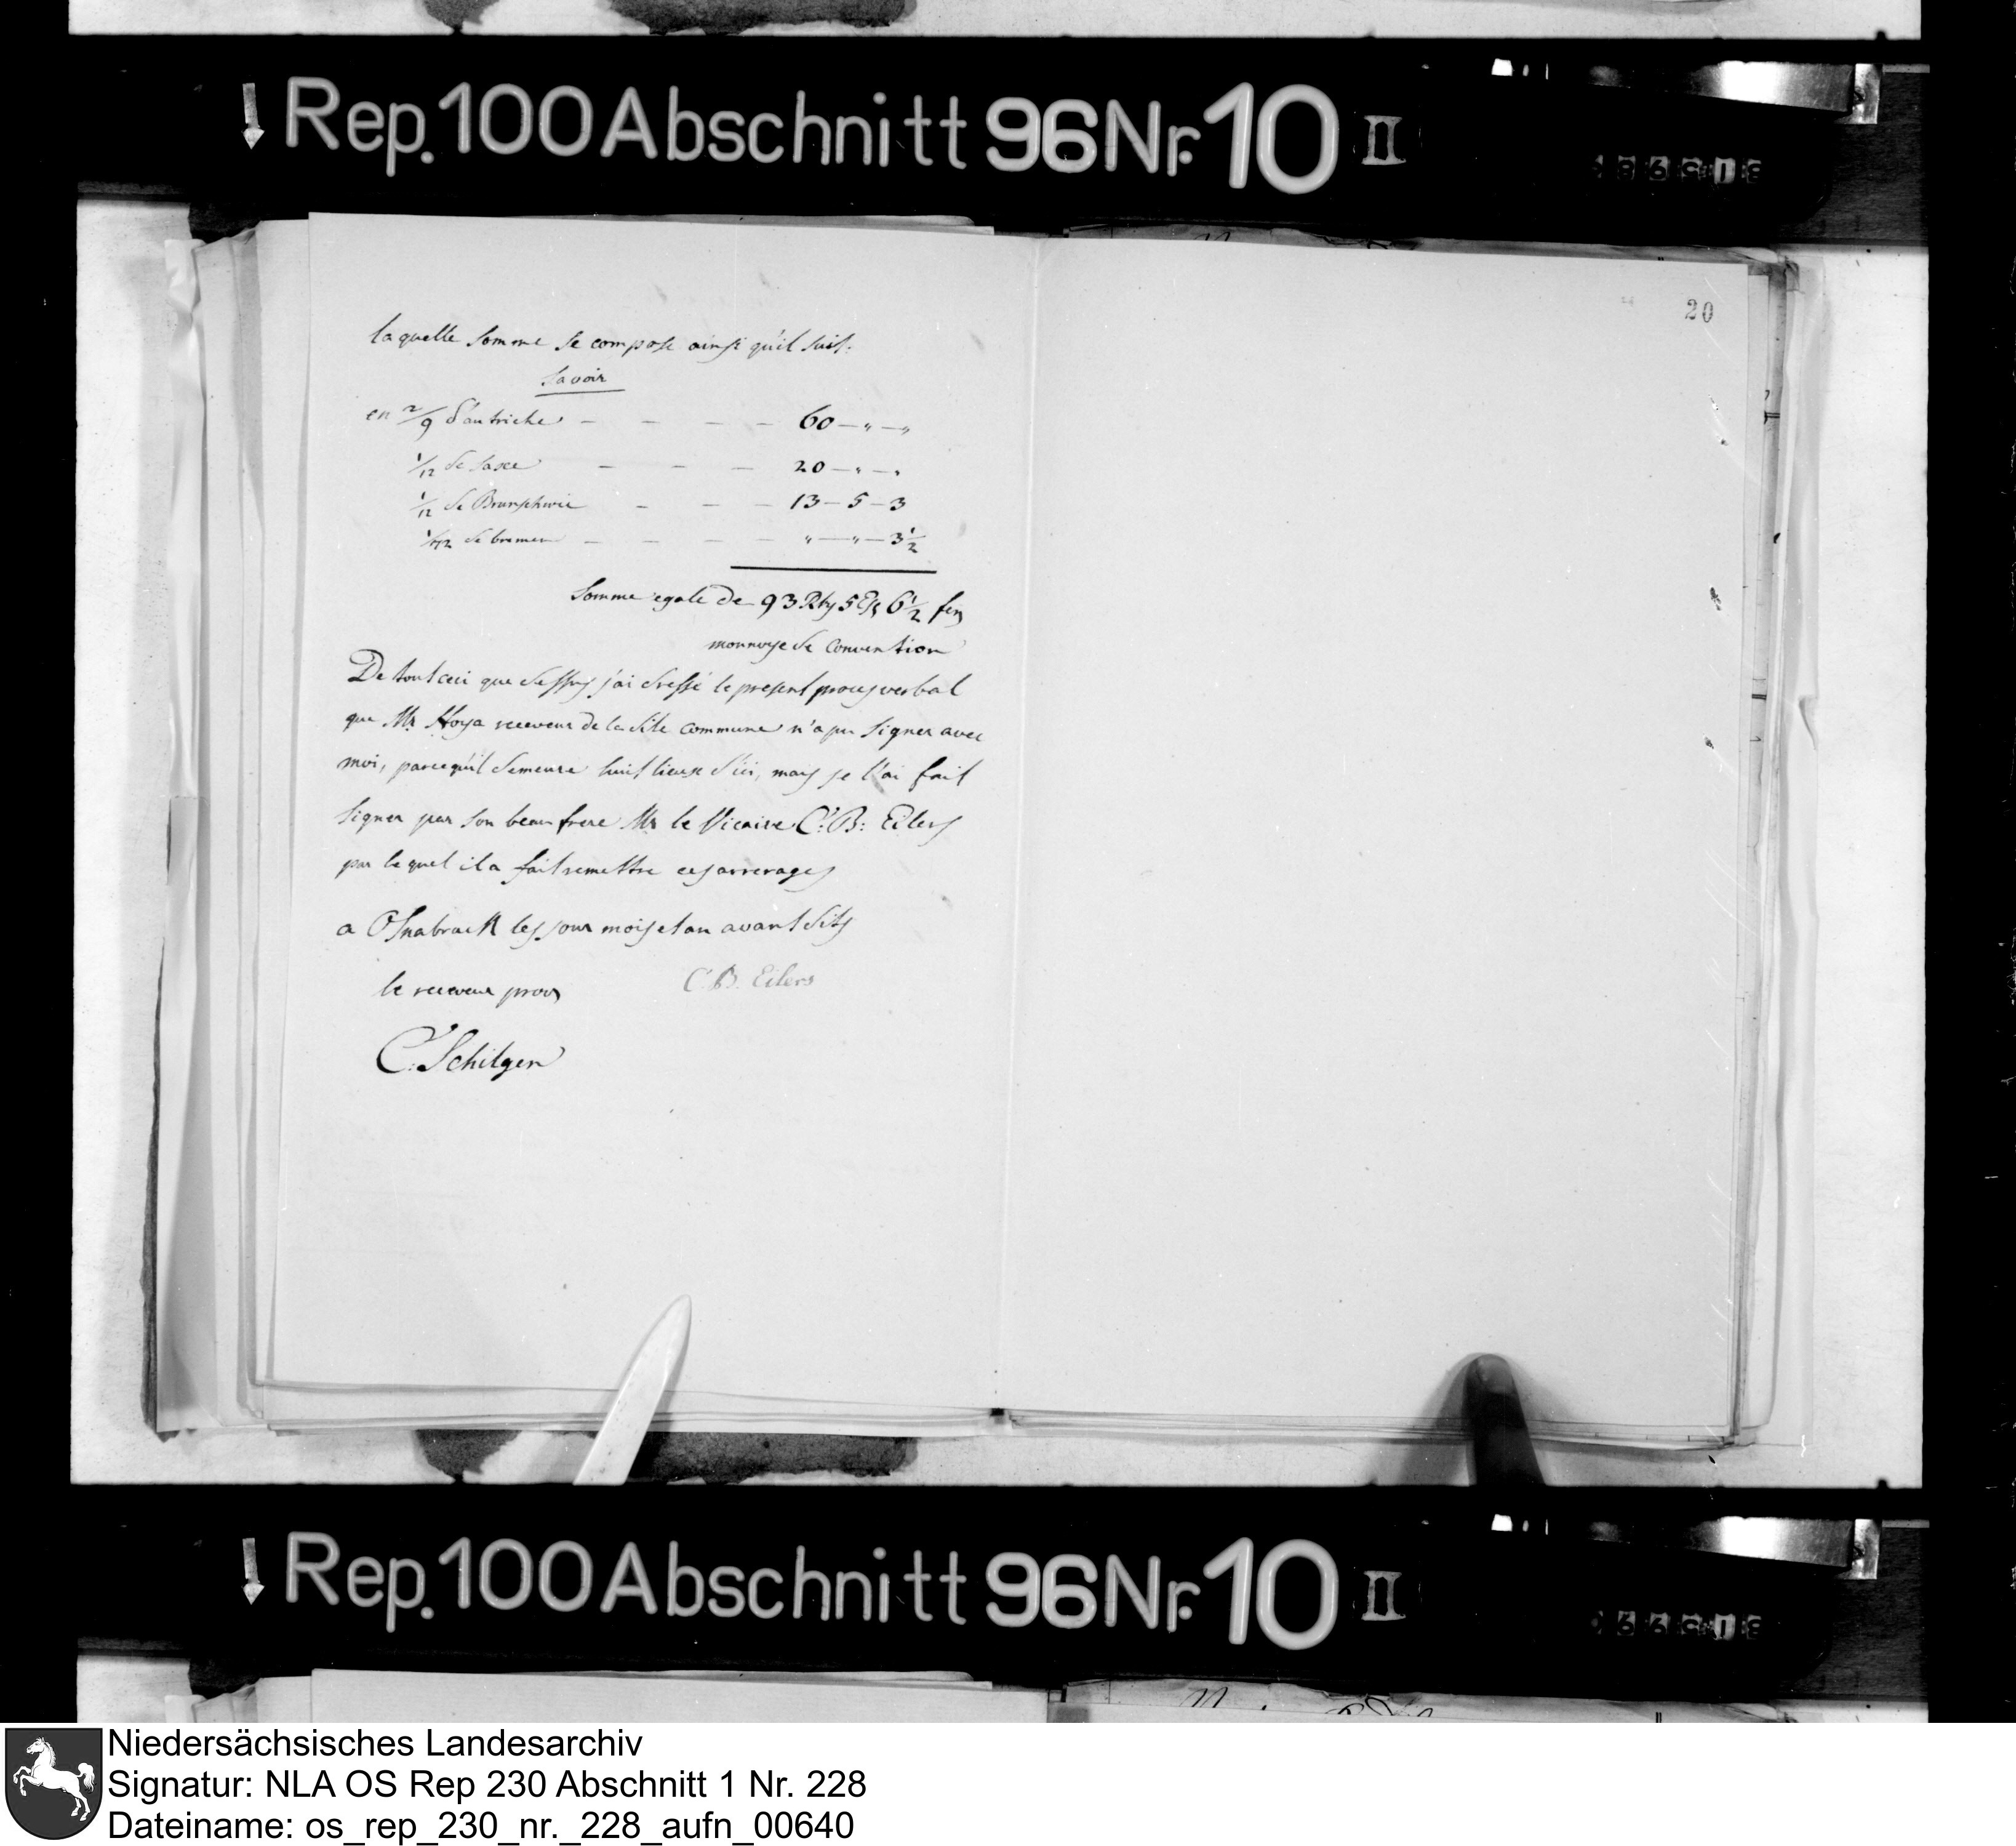 Rep. 100 Abschnitt 96 Nr. 10 II
20
laquelle somme se compose ainsi qu'il suit.
Savoir
en 2/9 d'autriche — — — — 60 — " — "
1/12 de Saxe — — — 20 — " — "
1/12 de Brunschwic — — — 13 — 5 — 3
de bremen — — — — " — " — 3 1/2
Somme egale de 93 Rth 5 gs 6 1/2 fen
monnoye de Convention
De tout ceci que dessus j'ai dressé le present proces verbal
que Mr Hoya receveur de la dite commune n'a pu signer avec
moi, parcequ'il demeure huit lieux d'ici, mais je l'ai fait
signer par son beau frere Mr le Vicaire C: B: Eilers
par lequel il a fait remettre ces arrerages
a Osnabruck les jour mois et an avant dits
le receveur prov
C. B. Eilers
C. Schilgen
Rep. 100 Abschnitt 96 Nr. 10 II
Niedersächsisches Landesarchiv
Signatur: NLA OS Rep 230 Abschnitt 1 Nr. 228
Dateiname: os_rep_230_nr._228_aufn_00640